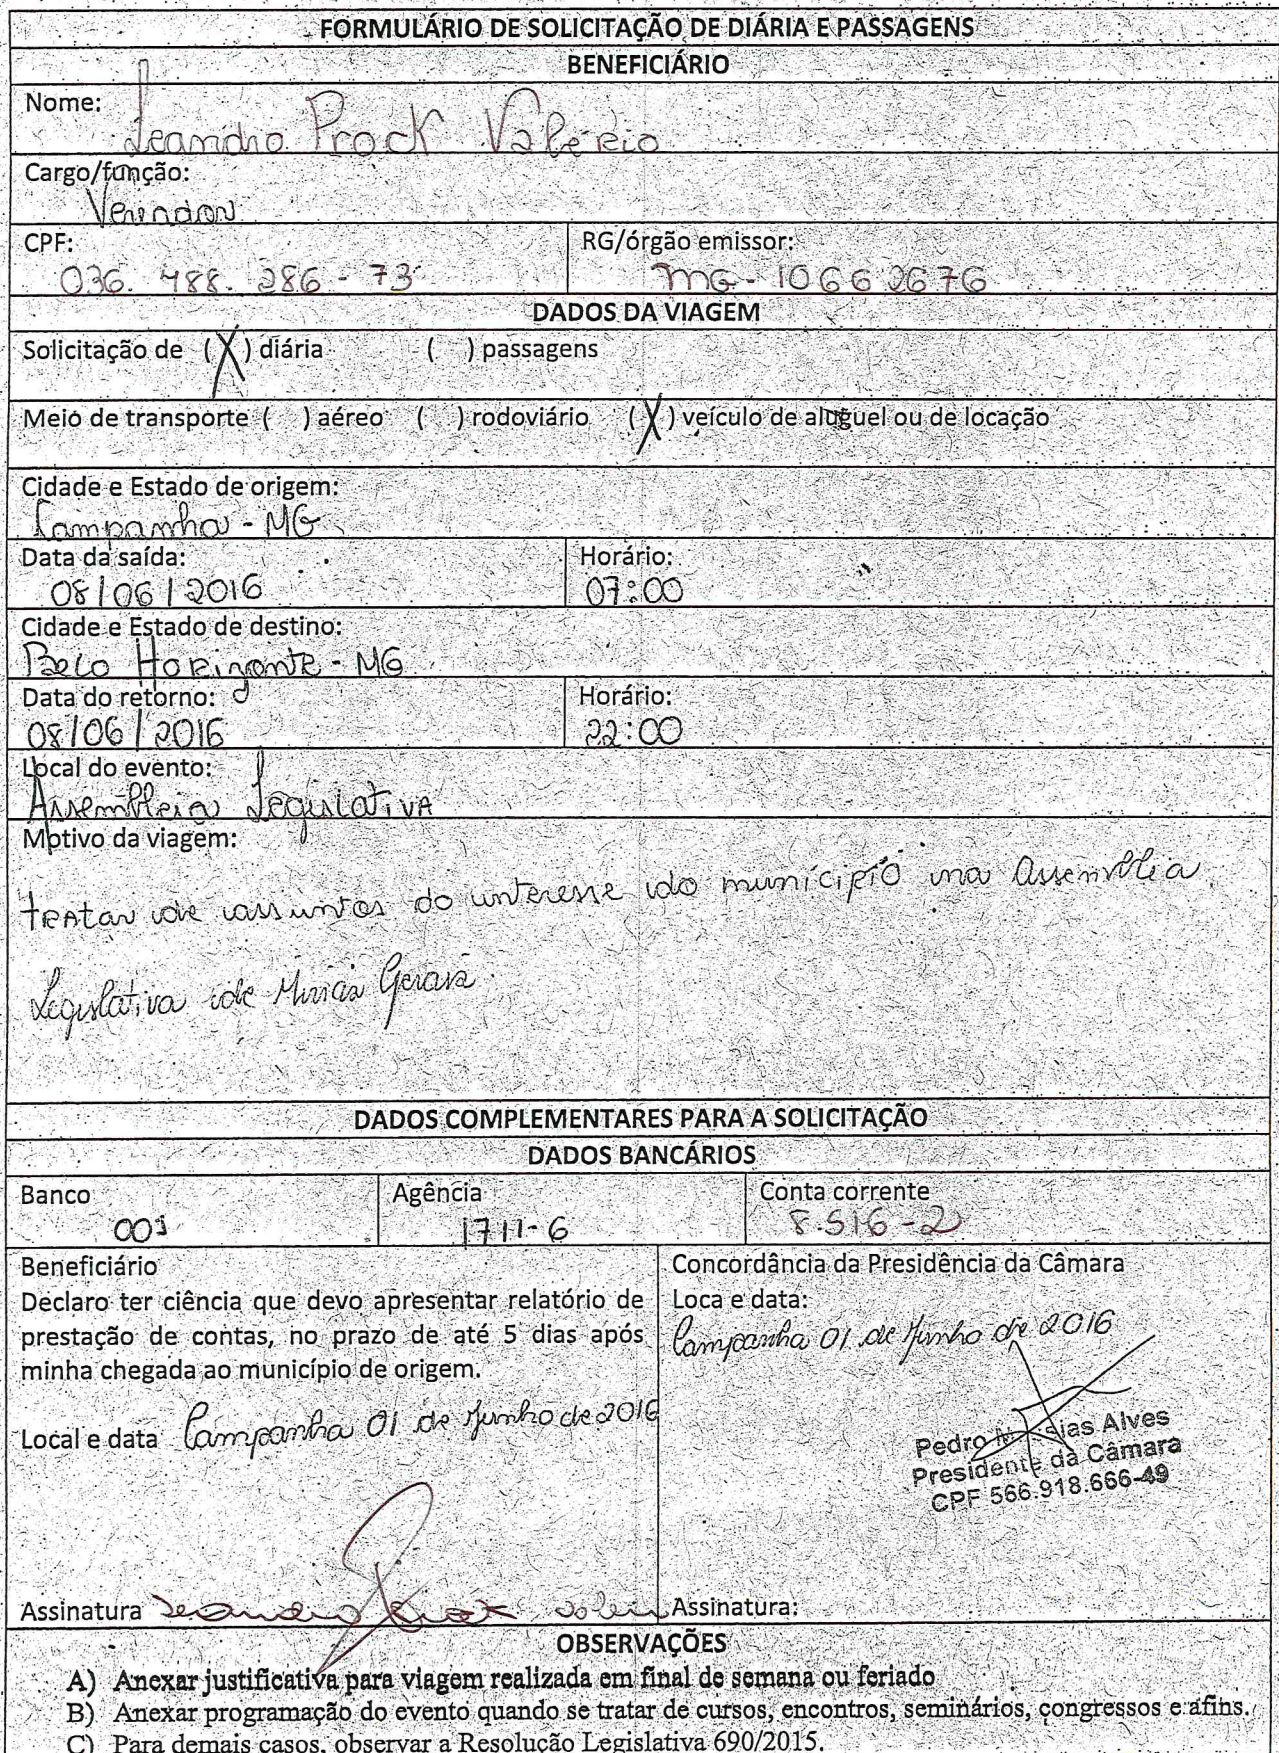 FORMULÁRIO DE SOLICITAÇÃO DE DIÁRIA E PASSAGENS
BENEFICIÁRIO
Nome:
Leandro Prock Valério
Cargo/função:
Vereador
CPF:
036. 488. 286 - 73
RG/órgão emissor:
MG - 10662676
DADOS DA VIAGEM
Solicitação de (X) diária ( ) passagens
Meio de transporte ( ) aéreo ( ) rodoviário (X) veículo de aluguel ou de locação
Cidade e Estado de origem:
Campanha - MG
Data da saída:
08/06/2016
Horário:
07:00
Cidade e Estado de destino:
Belo Horizonte - MG
Data do retorno:
08/06/2016
Horário:
22:00
Local do evento:
Assembleia Legislativa
Motivo da viagem:
tratar de assuntos do interesse do município na Assembleia
Legislativa de Minas Gerais
DADOS COMPLEMENTARES PARA A SOLICITAÇÃO
DADOS BANCÁRIOS
Banco
001
Agência
1711-6
Conta corrente
8.516-2
Beneficiário
Declaro ter ciência que devo apresentar relatório de
prestação de contas, no prazo de até 5 dias após
minha chegada ao município de origem.
Local e data Campanha 01 de Junho de 2016
Assinatura Leandro Prock Valeri
Concordância da Presidência da Câmara
Loca e data:
Campanha 01 de Junho de 2016
Pedro Alves
Presidente da Câmara
CPF 566.918.666-49
Assinatura:
OBSERVAÇÕES
A) Anexar justificativa para viagem realizada em final de semana ou feriado
B) Anexar programação do evento quando se tratar de cursos, encontros, seminários, congressos e afins.
C) Para demais casos, observar a Resolução Legislativa 690/2015.